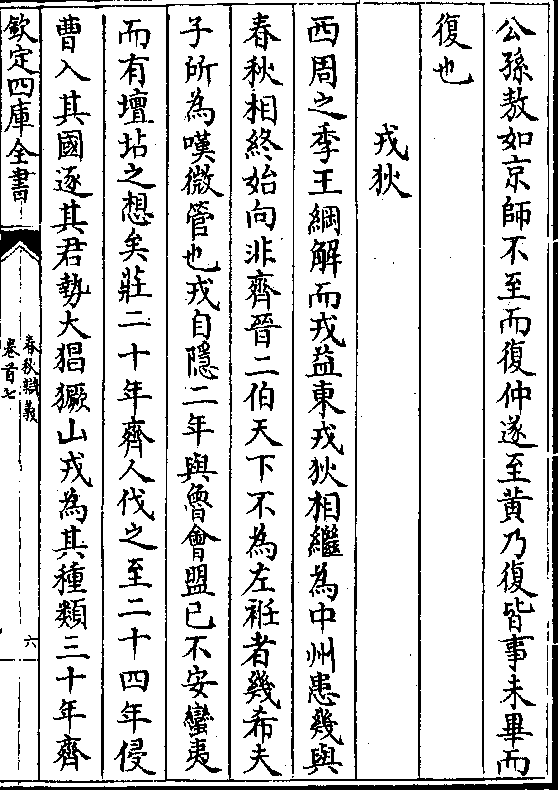 公孫敖如京師不至而復仲遂至黄乃復皆事未畢而
復也
戎狄
西周之季王綱解而戎益東戎狄相繼為中州患幾與
春秋相終始向非齊晉二伯天下不為左袵者幾希夫
子所為嘆微管也戎自隱二年與魯會盟已不安蠻夷
而有壇坫之想矣莊二十年齊人伐之至二十四年侵
曹入其國逐其君勢大猖獗山戎為其種類三十年齊
欽定四庫全書
春秋辯義
卷首七
六